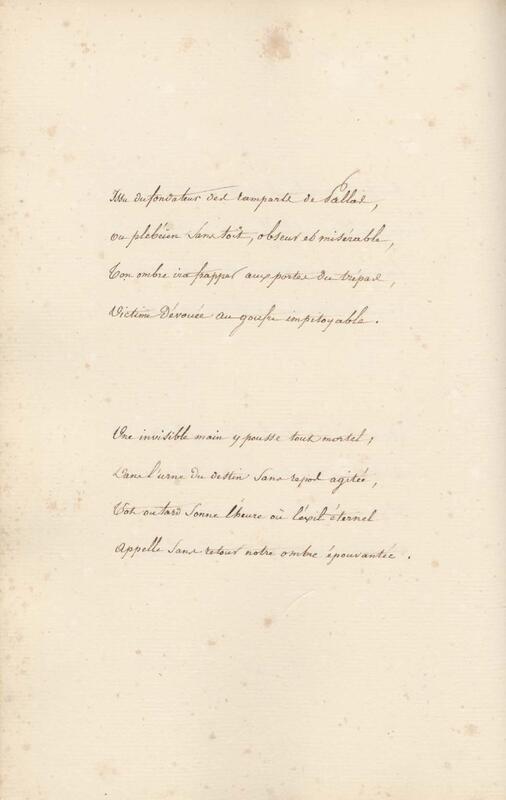 Issu du fondateur des remparts de Pallas,
ou plébéien sans toit, obscur et misérable,
Ton ombre ira frapper aux portes du trépas,
Victime dévouée au goufre impitoyable.
Une invisible main y pousse tout mortel;
Dans l'urne du destin sans repos agitée,
Tôt ou tard sonne l'heure où l'exil éternel
Appelle sans retour notre ombre épouvantée.